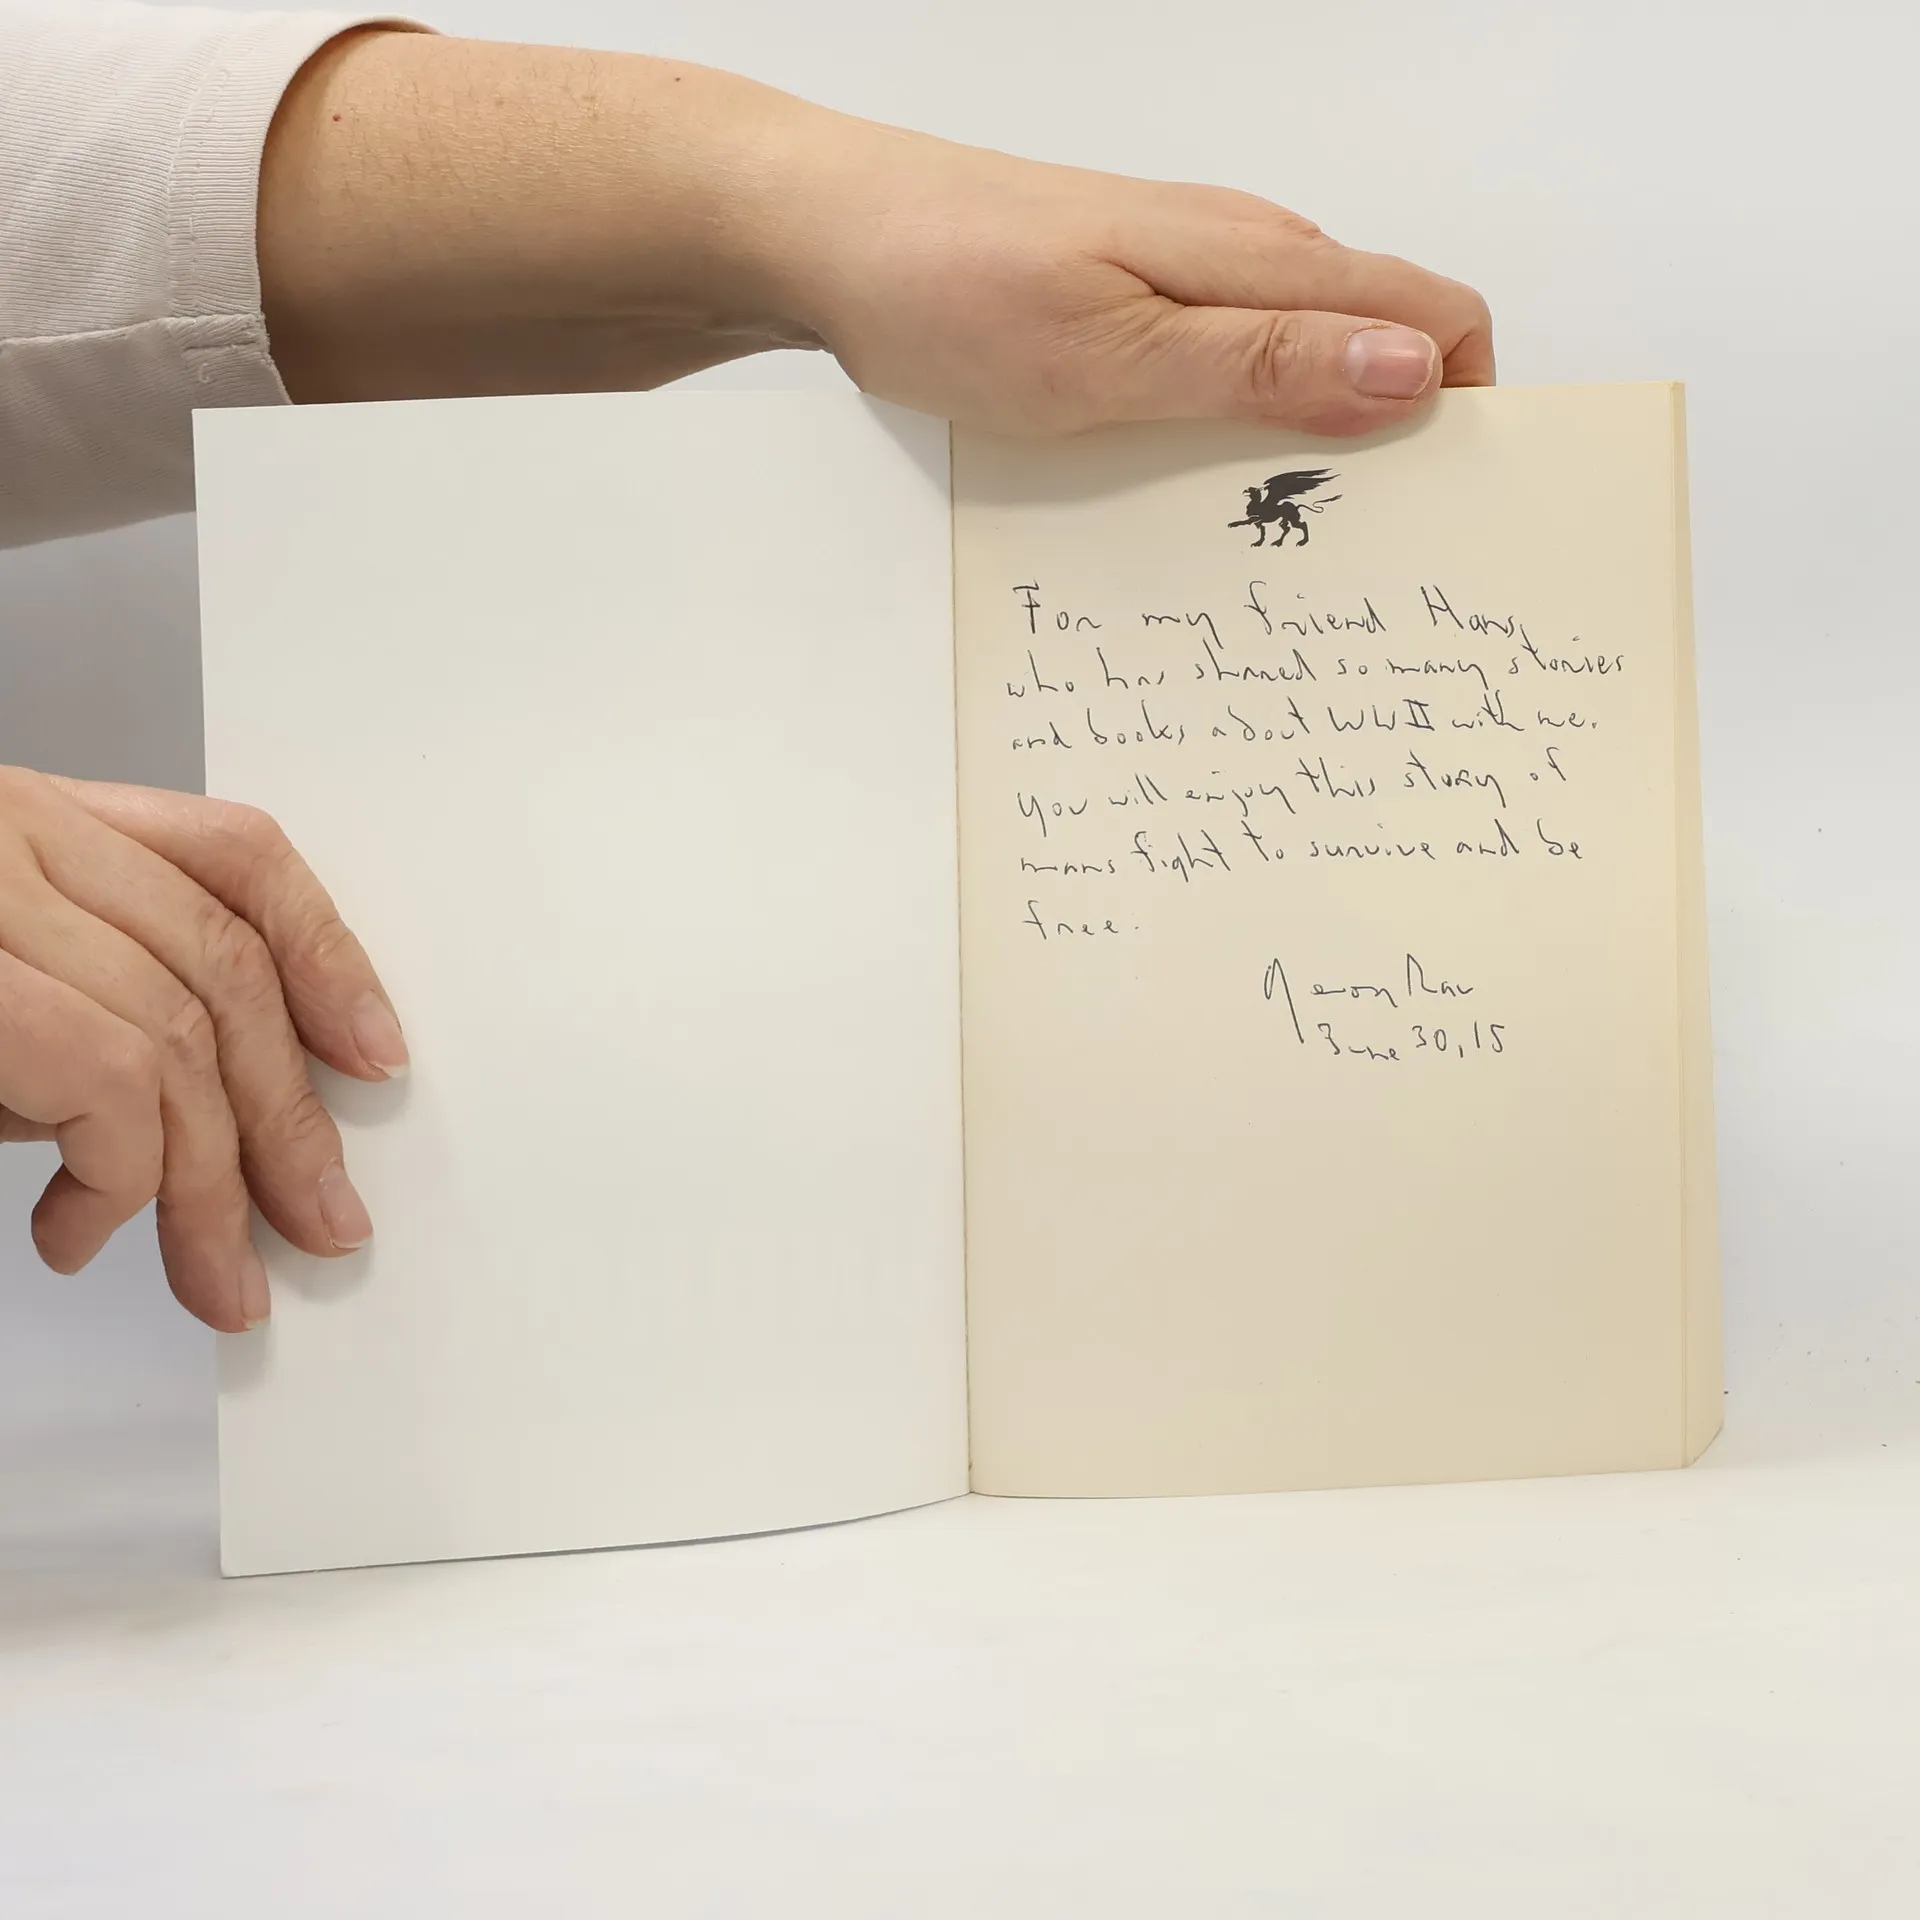 For my friend Hans,
who has shared so many stories
and books about WWII with me.
You will enjoy this story of
mans fight to survive and be
free.
June 30, 15